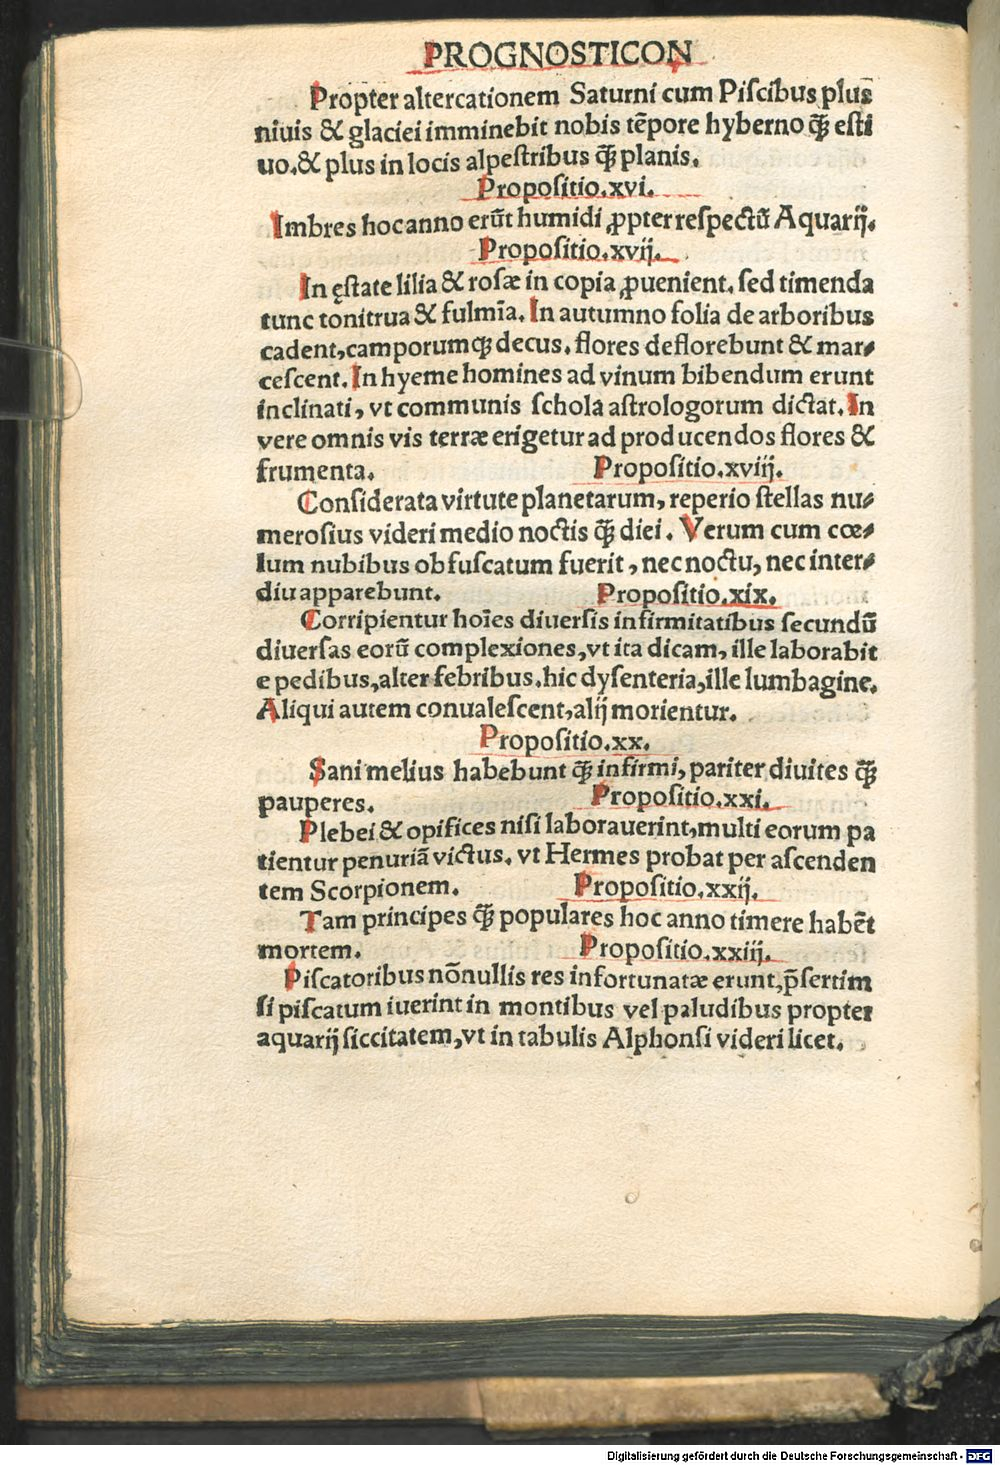 PROGNOSTICON
Propter altercationem Saturni cum Piſcibus plus
niuis & glaciei imminebit nobis tēpore hyberno q̃ eſti
uo,& plus in locis alpeſtribus q̃ planis.
Propoſitio.xvi.
Imbres hoc anno erūt humidi ꝓpter reſpectū Aquarij.
Propoſitio.xvij.
In ęſtate lilia & roſæ in copia ꝓuenient, ſed timenda
tunc tonitrua & fulmīa. In autumno folia de arboribus
cadent,camporumqꝫ decus. flores deflorebunt & mar⸗
ceſcent. In hyeme homines ad vinum bibendum erunt
inclinati, vt communis ſchola aſtrologorum dictat. In
vere omnis vis terræ erigetur ad producendos flores &
frumenta. Propoſitio.xviij.
Conſiderata virtute planetarum, reperio ſtellas nu⸗
meroſius videri medio noctis q̃ diei. Verum cum cœ⸗
lum nubibus obfuſcatum fuerit, nec noctu, nec inter⸗
diu apparebunt. Propoſitio.xix.
Corripientur hoīes diuerſis infirmitatibus ſecundū
diuerſas eorū complexiones,vt ita dicam, ille laborabit
e pedibus,alter febribus.hic dyſenteria,ille lumbagine.
Aliqui autem conualeſcent,alij morientur.
Propoſitio.xx.
Sani melius habebunt q̃ infirmi, pariter diuites q̃
pauperes. Propoſitio.xxi.
Plebei & opifices niſi laborauerint,multi eorum pa
tientur penuriā victus. vt Hermes probat per aſcenden
tem Scorpionem. Propoſitio.xxij.
Tam principes q̃ populares hoc anno timere habēt
mortem. Propoſitio.xxiij.
Piſcatoribus nōnullis res infortunatæ erunt,p̄ſertim
ſi piſcatum iuerint in montibus vel paludibus propter
aquarij ſiccitatem,vt in tabulis Alphonſi videri licet.
Digitalisierung gefördert durch die Deutsche Forschungsgemeinschaft - DFG